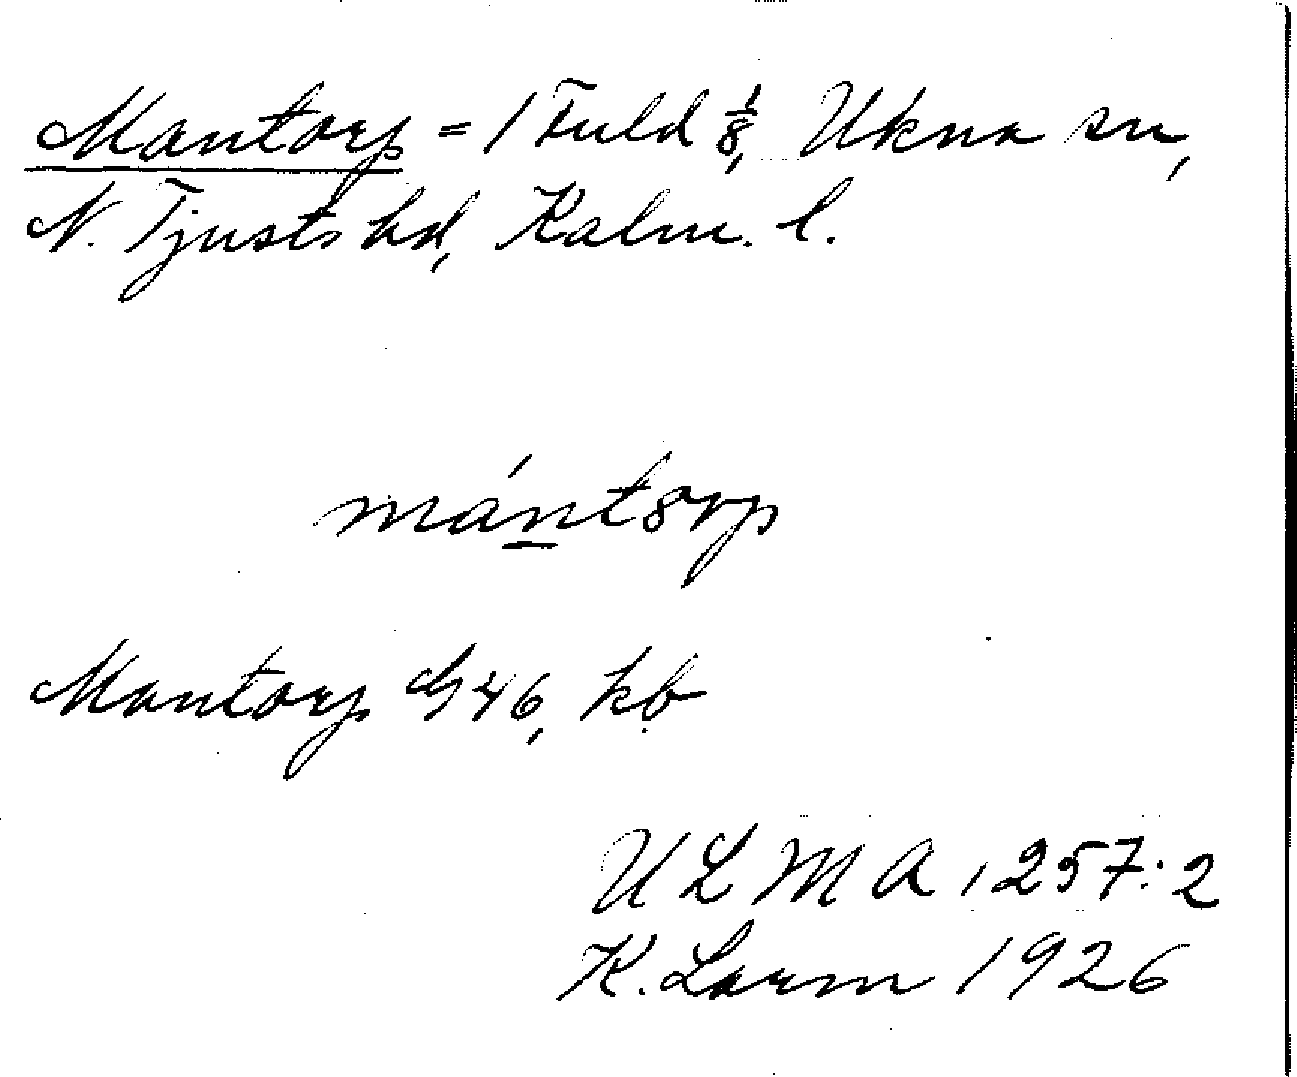 Mantorp = 1 Fuld 1/8, Ukna sn,
N. Tjusts hd, Kalm. l.
mántorp
Mantorp G 46, kb
U L M A 1257:2
K. Lorm 1926